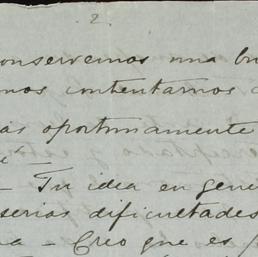 2.
conservemos una bu
mos contentarnos c
as oportunamente
– Tu idea en gene
serias dificultades
na – Creo que es